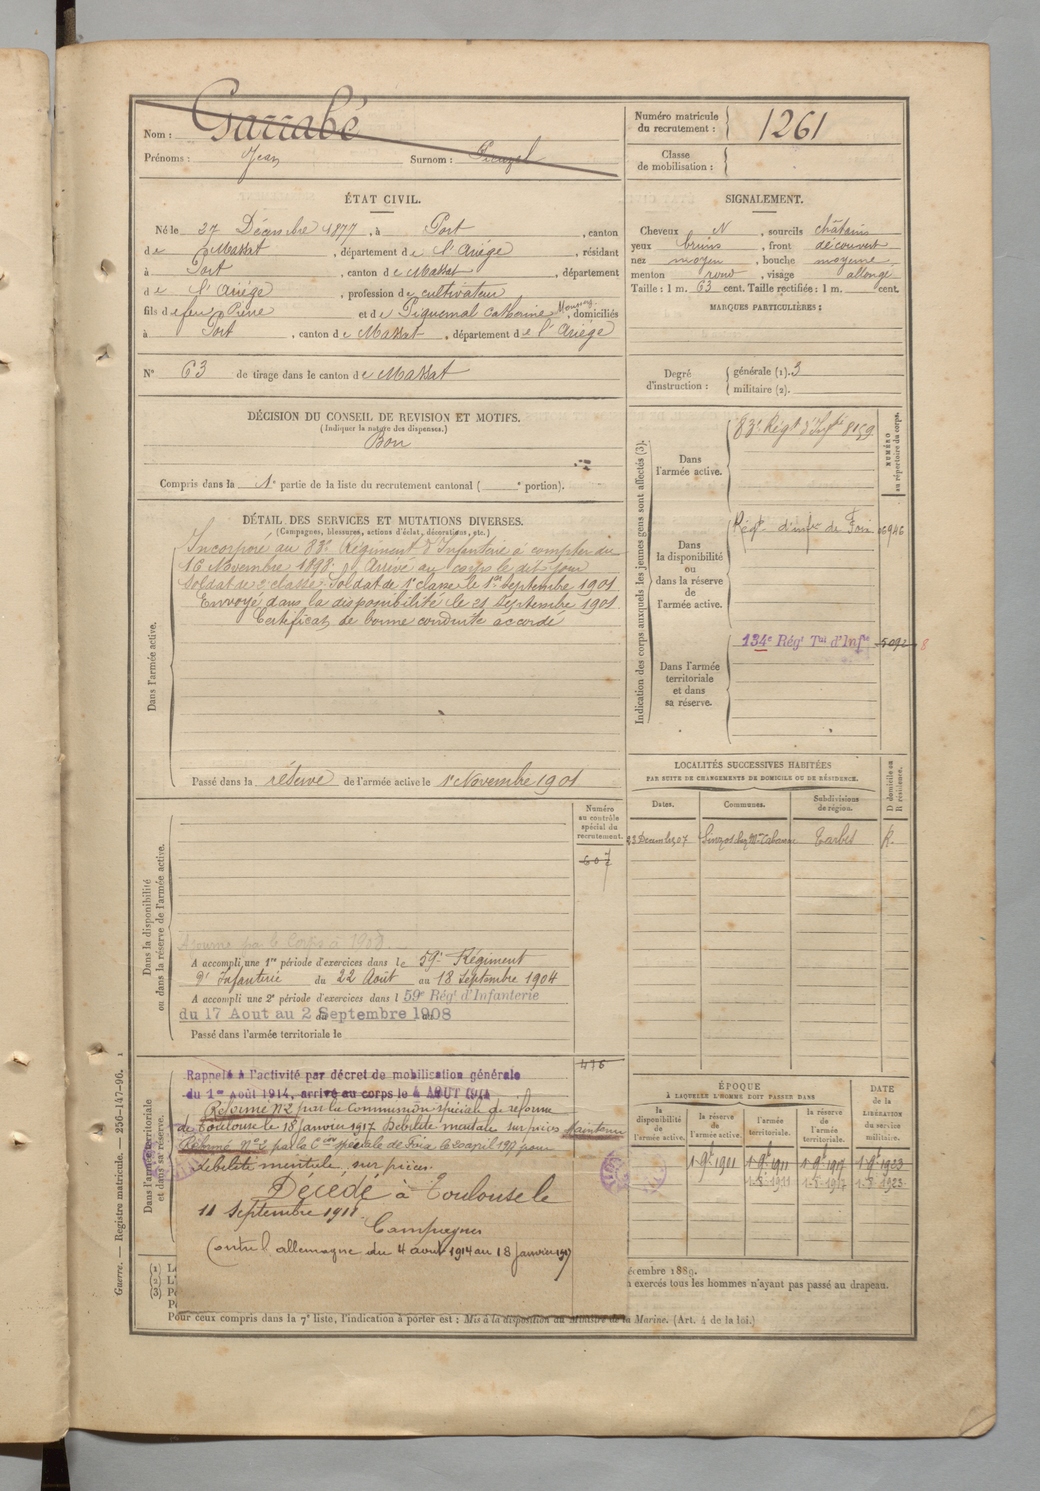 Nom : Garrabé
Prénoms : Jean Surnom :
Numéro matricule du recrutement : 1261
Classe de mobilisation :
ÉTAT CIVIL.
Né le 27 Décembre 1877, à Port, canton
de Massat, département de l'Ariège, résidant
à Port, canton de Massat, département
de l'Ariège, profession de cultivateur
fils de feu Pierre et de Piquemal Catherine, domiciliés
à Port, canton de Massat, département de l'Ariège
N° 63 de tirage dans le canton de Massat
SIGNALEMENT.
Cheveux N, sourcils châtains
yeux bruns, front découvert
nez moyen, bouche moyenne
menton rond, visage allongé
Taille : 1 m. 63 cent. Taille rectifiée : 1 m. cent.
MARQUES PARTICULIÈRES :
Degré d'instruction : générale (1). 3
militaire (2).
DÉCISION DU CONSEIL DE REVISION ET MOTIFS.
(Indiquer la nature des dispenses.)
Bon
Compris dans la 1e partie de la liste du recrutement cantonal ( e portion).
DÉTAIL DES SERVICES ET MUTATIONS DIVERSES.
(Campagnes, blessures, actions d'éclat, décorations, etc.)
Dans l'armée active.
Incorporé au 83e Régiment d'Infanterie à compter du
16 Novembre 1898. Arrivé au corps le dit jour
Soldat de 2e classe. Soldat de 1e classe le 1er Septembre 1901
Envoyé dans la disponibilité le 21 Septembre 1901
Certificat de bonne conduite accordé
Passé dans la réserve de l'armée active le 1e Novembre 1901
Indication des corps auxquels les jeunes gens sont affectés (3).
NUMÉRO au répertoire du corps.
Dans l'armée active.
83e Régt d'Infrie 8159
Dans la disponibilité ou dans la réserve de l'armée active.
Régt d'infie de Foix 06946
Dans l'armée territoriale et dans sa réserve.
134e Régt Tal d'Infie
LOCALITÉS SUCCESSIVES HABITÉES
PAR SUITE DE CHANGEMENTS DE DOMICILE OU DE RÉSIDENCE.
Dates.
Communes.
Subdivisions de région.
D domicile ou R résidence.
Tarbes R.
Dans la disponibilité ou dans la réserve de l'armée active.
Numéro au contrôle spécial du recrutement.
607
Ajourné par le Corps à 1908.
A accompli une 1re période d'exercices dans le 59e Régiment
d'Infanterie du 22 Août au 18 Septembre 1904
A accompli une 2e période d'exercices dans l 59e Régt d'Infanterie
du 17 Aout au 2 Septembre 1908
Passé dans l'armée territoriale le
Dans l'armée territoriale et dans sa réserve.
476
Rappelé à l'activité par décret de mobilisation générale
du 1er Août 1914, arrivé au corps le 4 AOUT 1914
Réformé N°2 par la Commission spéciale de réforme
de Toulouse le 18 Janvier 1917 Débilité mentale sur pièces Maintenu
Réformé N°2 par la Con spéciale de Foix le 20 avril 1917 pour
débilité mentale, sur pièces.
Décédé à Toulouse le
11 Septembre
Campagnes
Contre l'allemagne du 4 août 1914 au 18 Janvier 1917
ÉPOQUE
À LAQUELLE L'HOMME DOIT PASSER DANS
la disponibilité de l'armée active.
la réserve de l'armée active.
l'armée territoriale.
la réserve de l'armée territoriale.
DATE de la LIBÉRATION du service militaire.
1 9e 1901
écembre 1889.
exercés tous les hommes n'ayant pas passé au drapeau.
Pour ceux compris dans la 7e liste, l'indication à porter est : Mis à la disposition du Ministre de la Marine. (Art. 4 de la loi.)
Guerre. — Registre matricule. — 256-147-96.